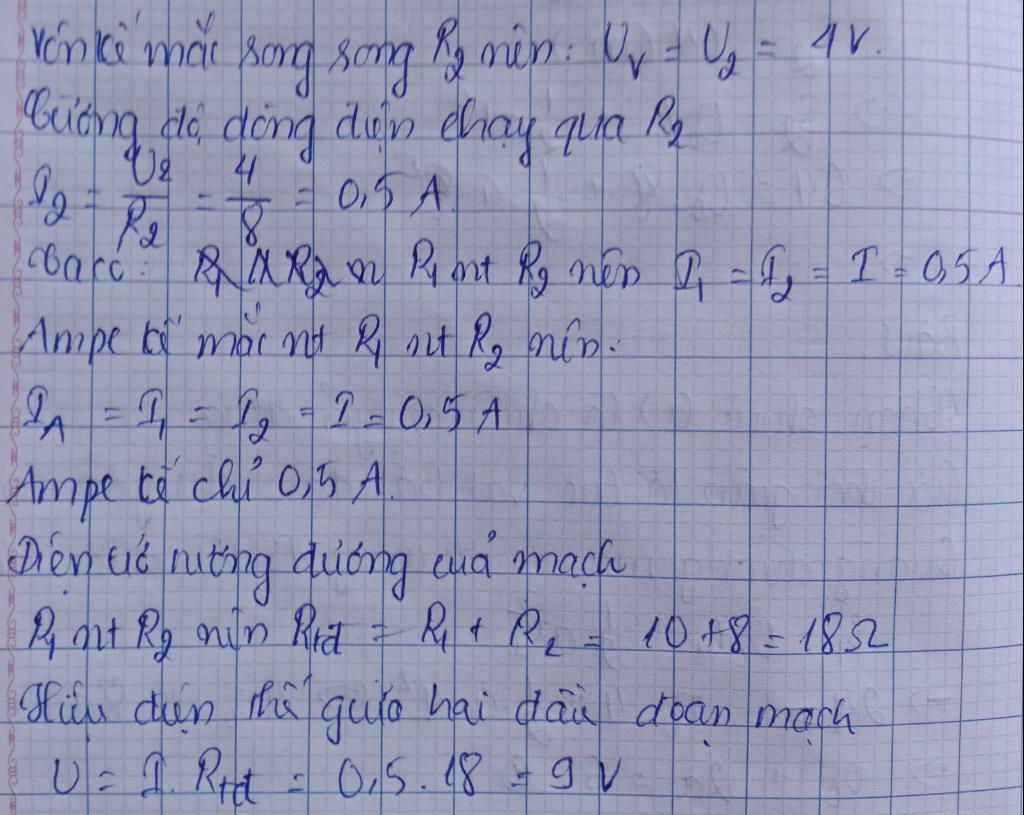 Vôn kế mắc song song R₂ nên: Uᵥ = U₂ = 4V.
Cường độ dòng điện chạy qua R₂
I₂ = U₂/R₂ = 4/8 = 0,5 A.
R₁ nt R₂ nên I₁ = I₂ = I = 0,5 A
Ampe kế mắc nt R₁ nt R₂ nên:
I_A = I₁ = I₂ = I = 0,5 A
Ampe kế chỉ 0,5 A.
Điện trở tương đương của mạch
R₁ nt R₂ nên Rtđ = R₁ + R₂ = 10 + 8 = 18Ω
Hiệu điện thế giữa hai đầu đoạn mạch
U = I. Rtđ = 0,5 . 18 = 9 V